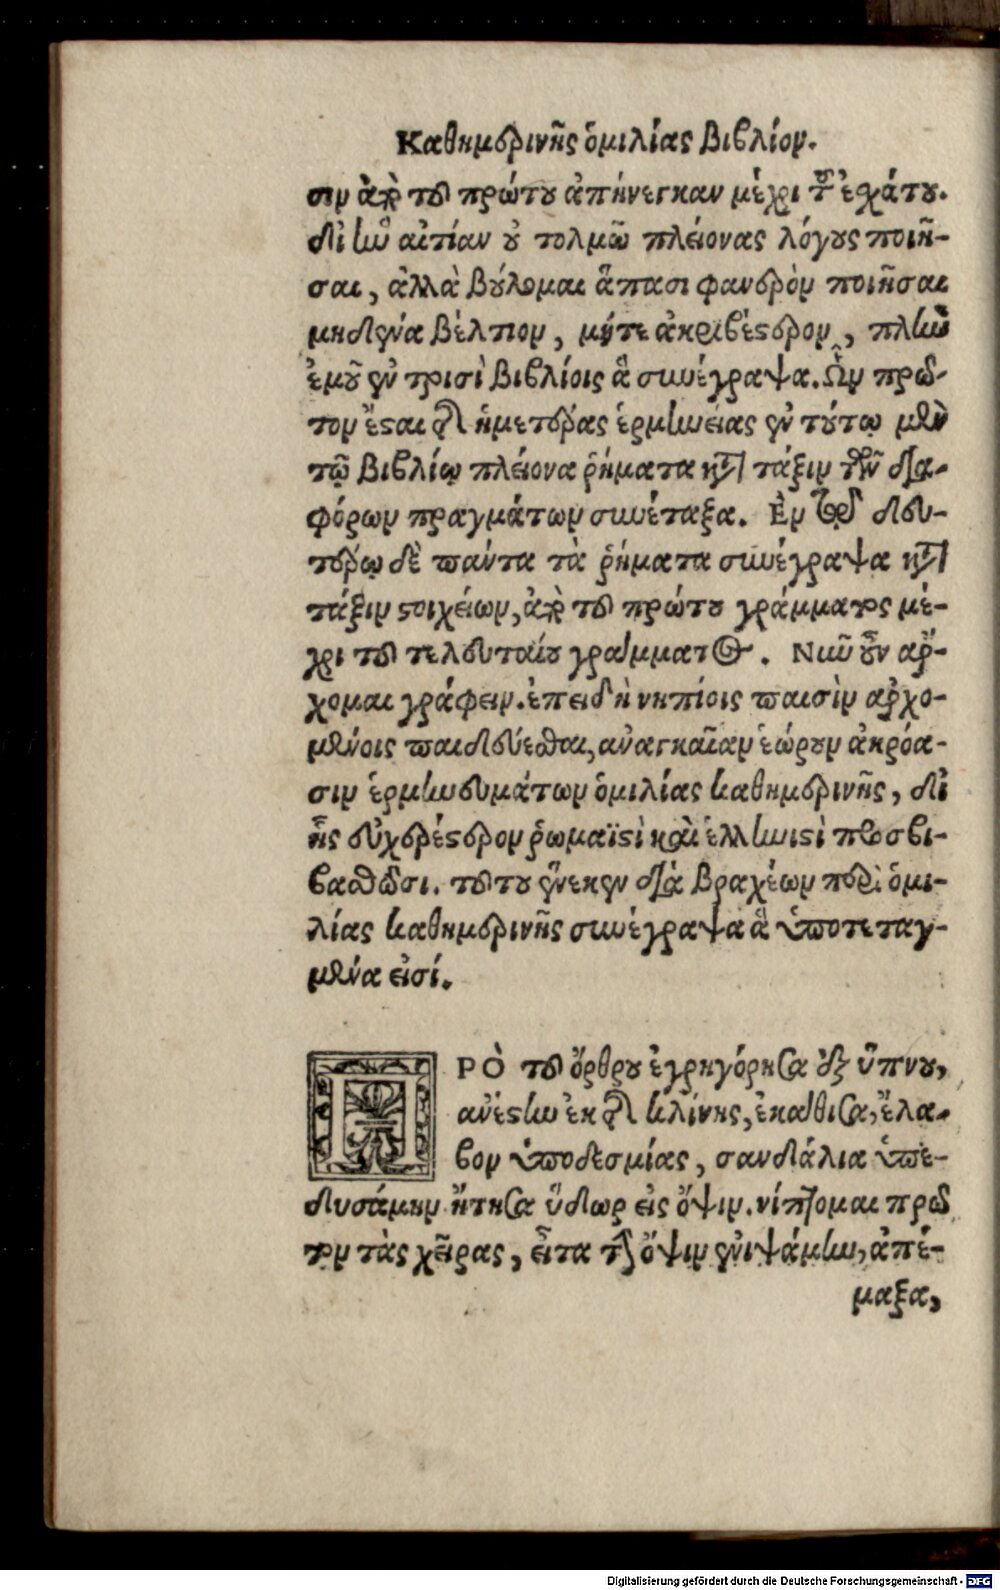 Καθημερινῆς ὁμιλίας βιβλίον.
σιν ἀπὸ τοῦ πρώτου ἀπήνεγκαν μέχρι τοῦ ἐχάτου.
δι' ἣν αἰτίαν οὐ τολμῶ πλείονας λόγους ποιῆ-
σαι, ἀλλὰ βούλομαι ἅπασι φανερὸν ποιῆσαι
μηδένα βέλτιον, μήτε ἀκριβέστερον, πλὴν
ἐμοῦ ἐν τρισὶ βιβλίοις ἃ συνέγραψα. Ὧν πρῶ-
τον ἔσται τῆς ἡμετέρας ἑρμηνείας ἐν τούτῳ μὲν
τῷ βιβλίῳ πλείονα ῥήματα κατὰ τάξιν τῶν δια-
φόρων πραγμάτων συνέταξα. Ἐν τῷ δευ-
τέρῳ δὲ πάντα τὰ ῥήματα συνέγραψα κατὰ
τάξιν στοιχείων, ἀπὸ τοῦ πρώτου γράμματος μέ-
χρι τοῦ τελευταίου γράμματος. Νῦν οὖν ἄρ-
χομαι γράφειν. ἐπειδὴ νηπίοις παισὶν ἀρχο-
μένοις παιδεύεσθαι, ἀναγκαῖαν ἑώρουν ἀκρόα-
σιν ἑρμηνευμάτων ὁμιλίας καθημερινῆς, δι'
ἧς εὐχερέστερον ῥωμαϊστὶ καὶ ἑλληνιστὶ προσβι-
βασθῶσι. τούτου ἕνεκεν διὰ βραχέων περὶ ὁμι-
λίας καθημερινῆς συνέγραψα ἃ ὑποτεταγ-
μένα εἰσί.
ΠΡῸ τοῦ ὄρθρου ἐγρηγόρησα ἐξ ὕπνου,
ἀνέστην ἐκ τῆς κλίνης, ἐκάθισα, ἔλα-
βον ὑποδεσμίας, σανδάλια ὑπε-
δυσάμην ᾔτησα ὕδωρ εἰς ὄψιν. νίπτομαι πρῶ
τον τὰς χεῖρας, εἶτα τὴν ὄψιν ἐνιψάμην, ἀπέ-
μαξα,
Digitalisierung gefördert durch die Deutsche Forschungsgemeinschaft - DFG